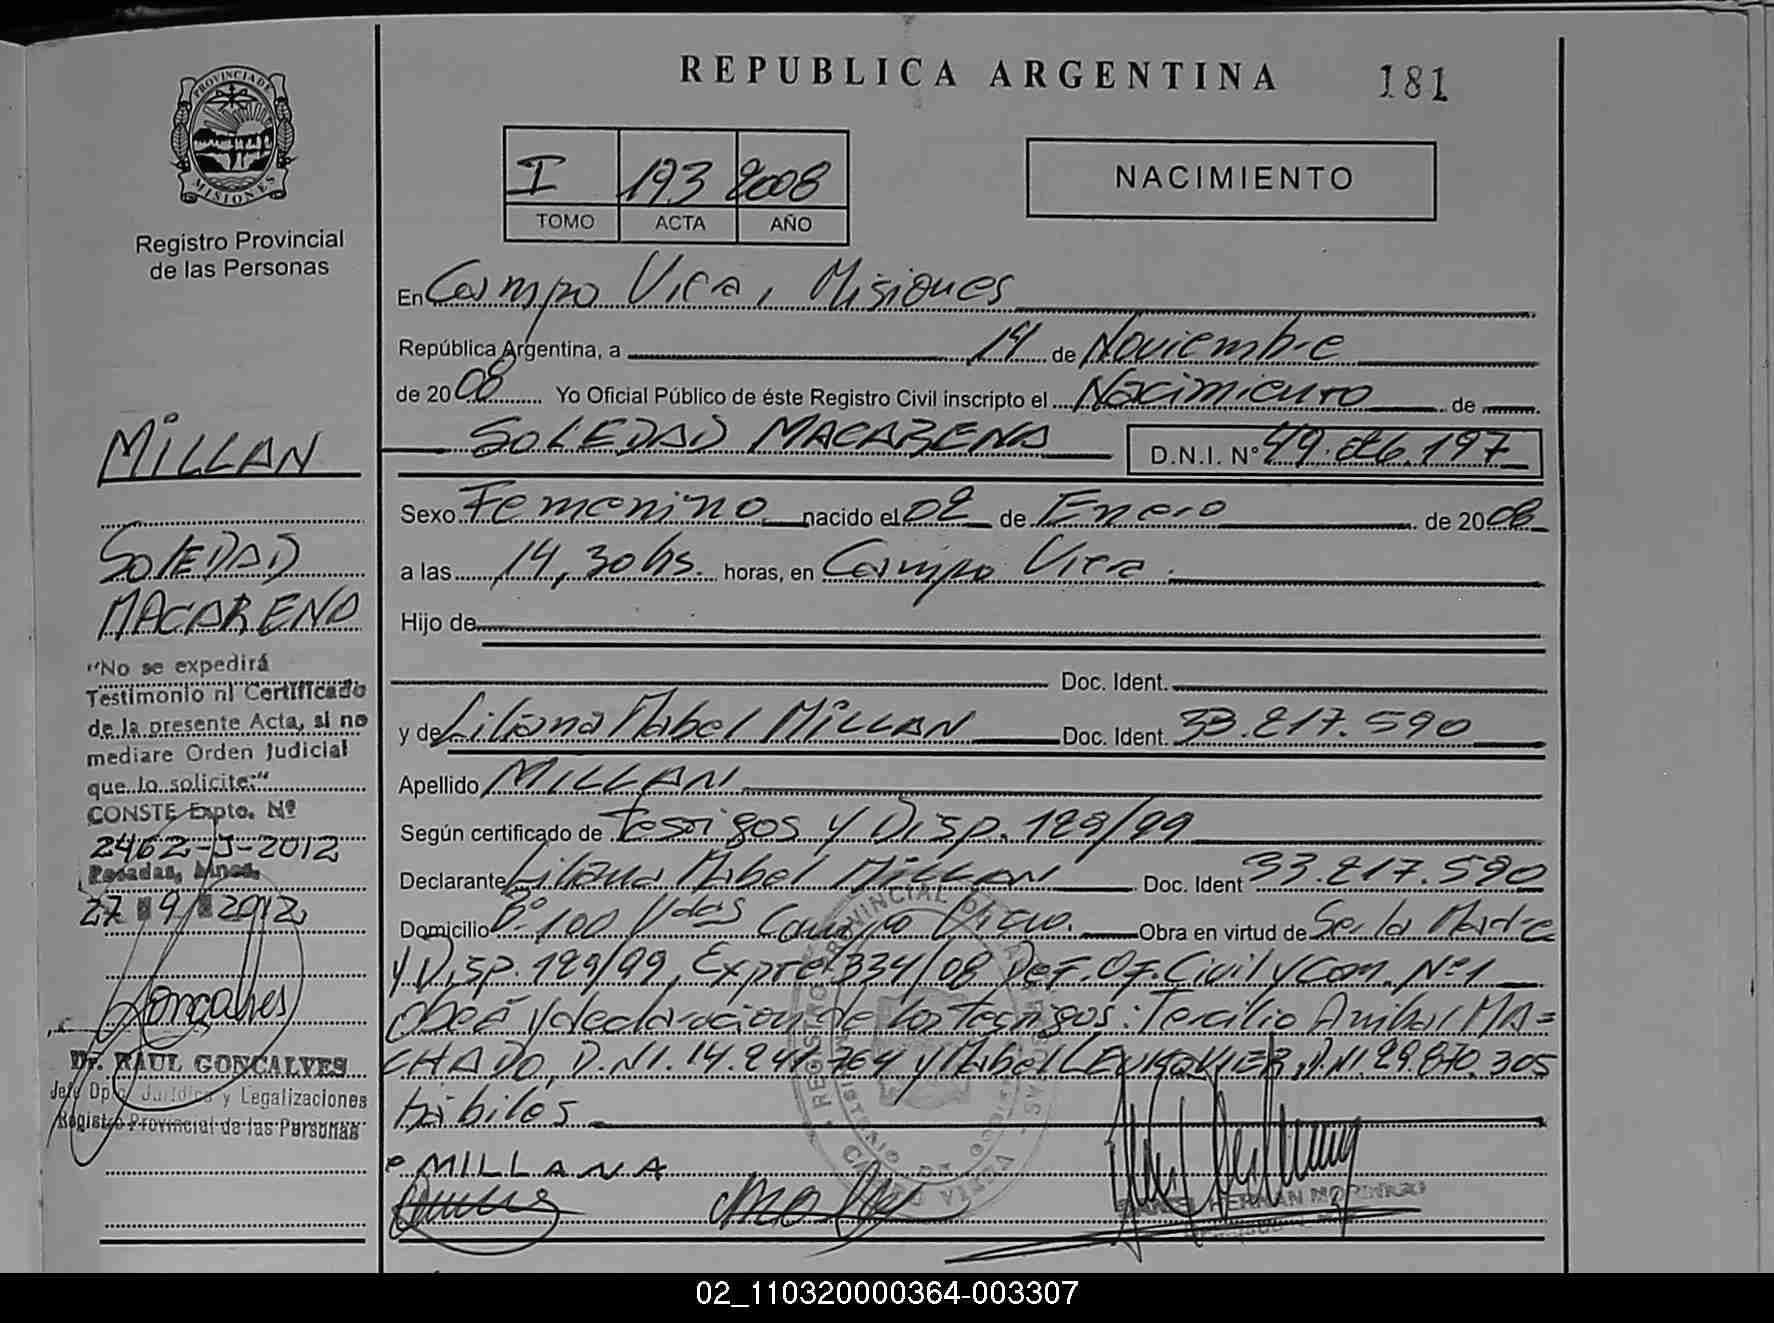 REPUBLICA ARGENTINA
181
PROVINCIA DE
MISIONES
Registro Provincial
de las Personas
I 193 2008
TOMO ACTA AÑO
NACIMIENTO
En Campo Viera, Misiones
República Argentina, a 14 de Noviembre
de 2008 Yo Oficial Público de éste Registro Civil inscripto el Nacimiento de
SOLEDAD MACARENA D.N.I. N°
Sexo Femenino nacido el 02 de Enero de 2008
a las 14,30 hs. horas, en Campo Viera.
Hijo de
Doc. Ident.
y de Liliana Mabel MILLAN Doc. Ident. 33.217.590
Apellido MILLAN
Según certificado de testigos y Disp. 129/99
Declarante Liliana Mabel MILLAN Doc. Ident 33.217.590
Domicilio B° 100 Vdas Campo Viera. Obra en virtud de Ser la Madre
y Disp. 129/99, Expte 334/08 Def. Of. Civil y Com. N°1
Oberá y declaración de los Testigos: Tercilio Anibal MA=
CHADO, D.N.I. 14.241.764 y Mabel D.N.I. 29.870.305
hábiles
MILLAN A
MILLAN
SOLEDAD
MACARENA
"No se expedirá
Testimonio ni Certificado
de la presente Acta, si no
mediare Orden Judicial
que lo solicite:"
CONSTE Expte. Nº
2462-J-2012
Posadas, Mnes.
27 9 2012
Goncalves
Dr. RAUL GONCALVES
Jefe Dpto. Jurídico y Legalizaciones
Registro Provincial de las Personas
02_110320000364-003307